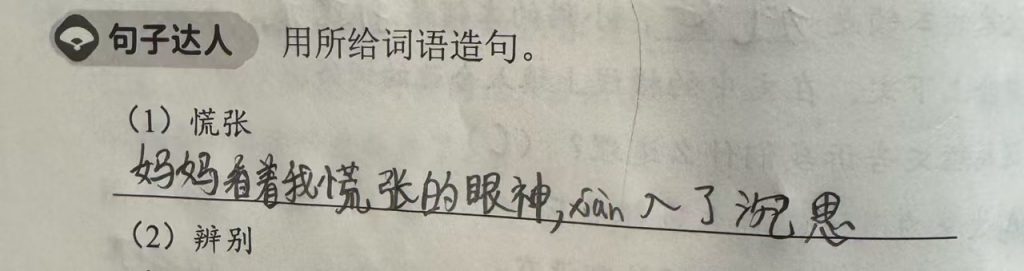 句子达人 用所给词语造句。
(1) 慌张
妈妈看着我慌张的眼神,xiàn入了沉思
(2) 辨别